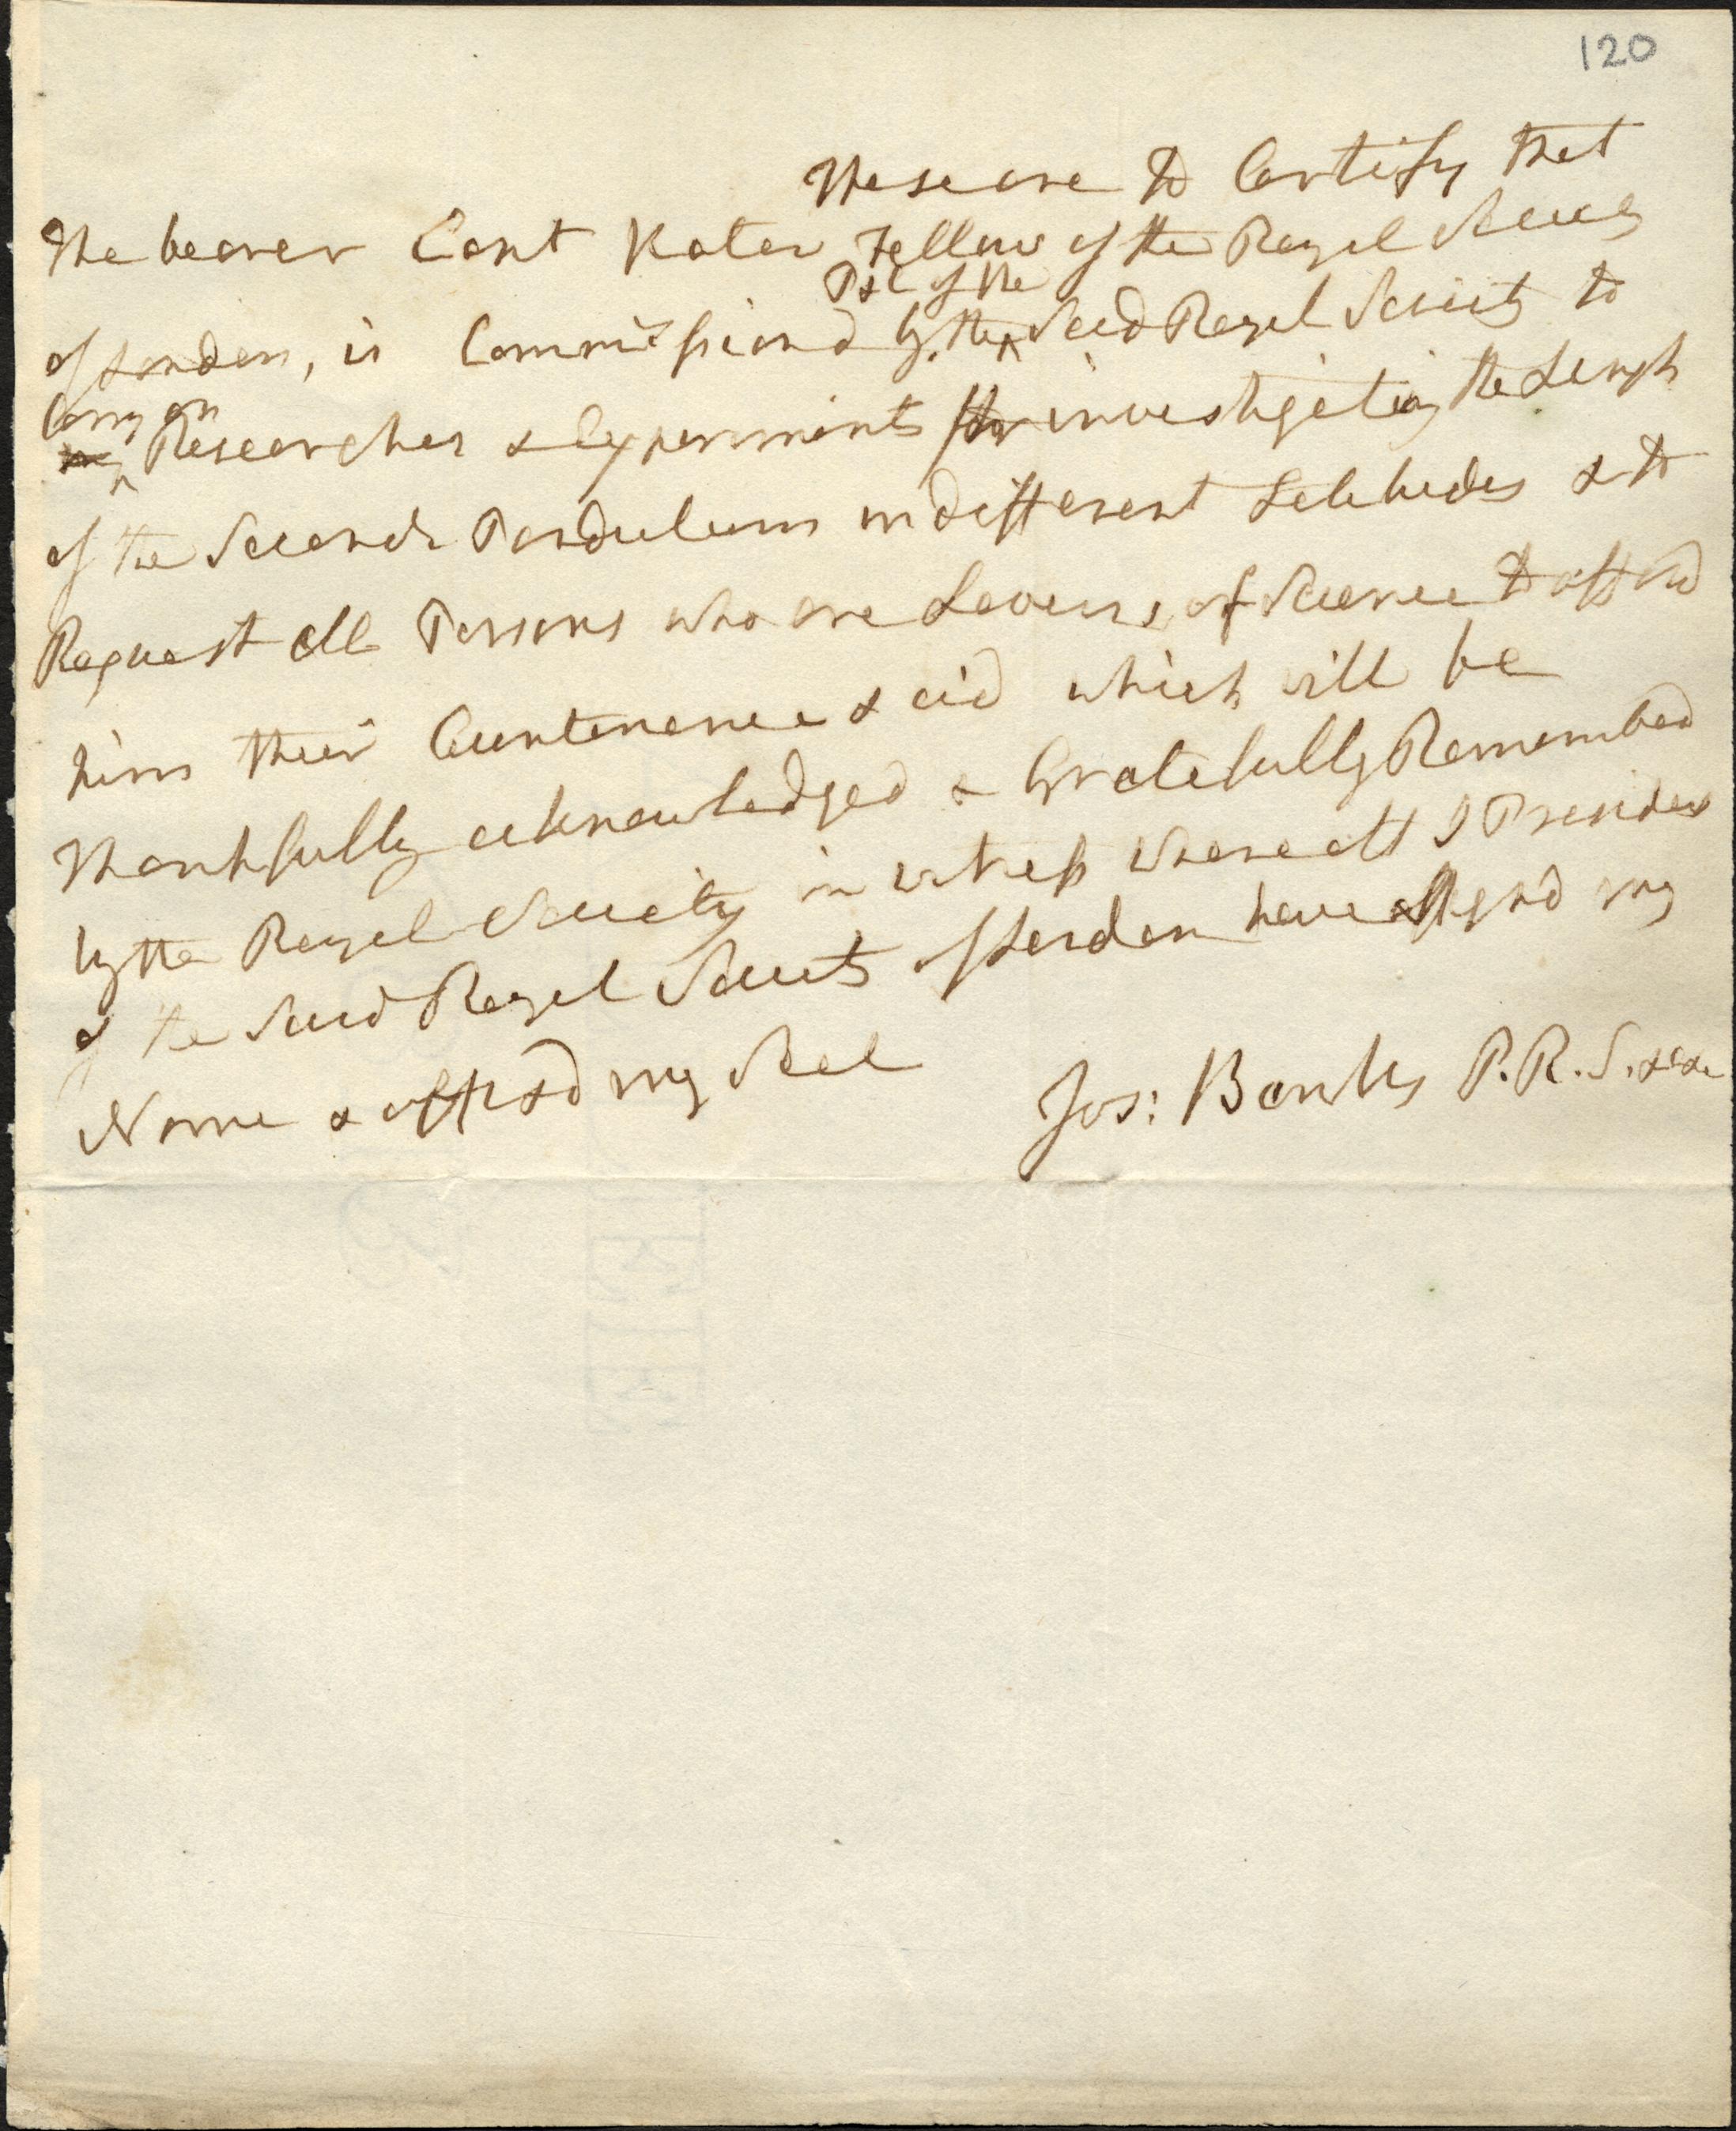 120
These are to Certify that
the bearer Capt Kater Fellow of the Royal Society
P & C of the
of London, is Commissiond by the Said Royal Society to
Carry on
Researches & Experiments for investigating the Length
of the Seconds Pendulum in different Latitudes & to
Request all Persons who are Lovers of Science to afford
him their Countenance & aid which will be
thankfully acknowledged & Gratefully Rememberd
by the Royal Society in witness whereoff I President
of the Said Royal Society of London have Signd my
Name & affixd my Seal
Jos: Banks P.R.S. &c &c